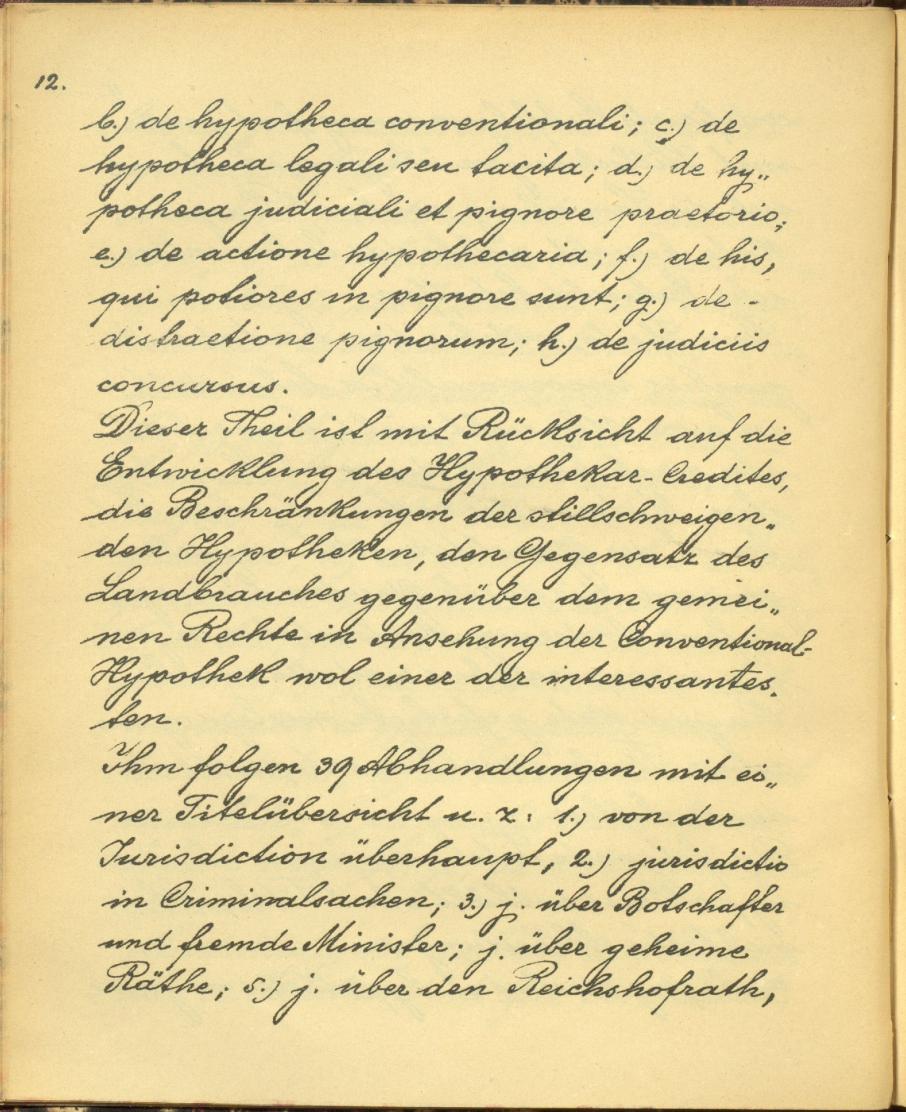 12.
b.) de hypotheca conventionali; c.) de
hypotheca legali seu tacita; d.) de hy„
potheca judiciali et pignore praetorio;
e.) de actione hypothecaria; f.) de his,
qui potiores in pignore sunt; g.) de -
distractione pignorum; h.) de judiciis
concursus.
Dieser Theil ist mit Rücksicht auf die
Entwicklung des Hypothekar-Credites,
die Beschränkungen der stillschweigen„
den Hypotheken, den Gegensatz des
Landbrauches gegenüber dem gemei„
nen Rechte in Ansehung der Conventional-
Hypothek wol einer der interessantes„
ten.
Ihm folgen 39 Abhandlungen mit ei„
ner Titelübersicht u. z: 1.) von der
Jurisdiction überhaupt, 2.) jurisdictio
in Criminalsachen; 3.) j. über Botschafter
und fremde Minister; j. über geheime
Räthe; 5.) j. über den Reichshofrath,